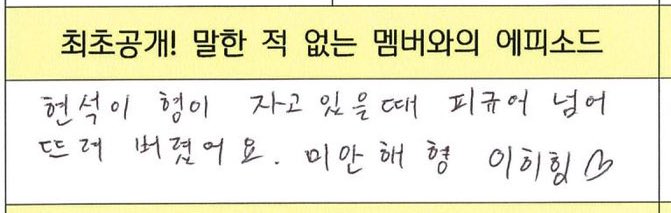 최초공개! 말한 적 없는 멤버와의 에피소드
현석이 형이 자고 있을때 피규어 넘어
뜨려 버렸어요. 미안해 형 이히힝♡